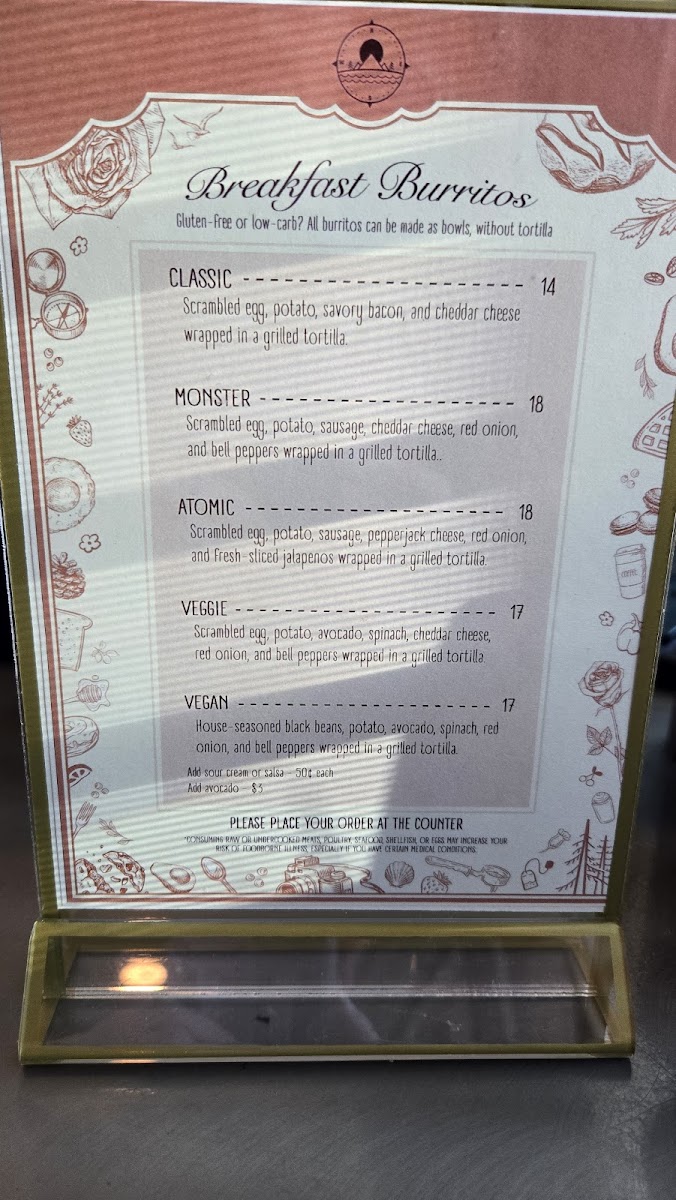 Breakfast Burritos
Gluten-free or low-carb? All burritos can be made as bowls, without tortilla
CLASSIC - - - - - - - - - - - - - - - - - - - - - - - 14
Scrambled egg, potato, savory bacon, and cheddar cheese
wrapped in a grilled tortilla.
MONSTER - - - - - - - - - - - - - - - - - - - - - 18
Scrambled egg, potato, sausage, cheddar cheese, red onion,
and bell peppers wrapped in a grilled tortilla..
ATOMIC - - - - - - - - - - - - - - - - - - - - - - 18
Scrambled egg, potato, sausage, pepperjack cheese, red onion,
and fresh-sliced jalapenos wrapped in a grilled tortilla.
VEGGIE - - - - - - - - - - - - - - - - - - - - - - 17
Scrambled egg, potato, avocado, spinach, cheddar cheese,
red onion, and bell peppers wrapped in a grilled tortilla.
VEGAN - - - - - - - - - - - - - - - - - - - - - - 17
House-seasoned black beans, potato, avocado, spinach, red
onion, and bell peppers wrapped in a grilled tortilla.
Add sour cream or salsa - 50¢ each
Add avocado - $3
PLEASE PLACE YOUR ORDER AT THE COUNTER
*CONSUMING RAW OR UNDERCOOKED MEATS, POULTRY, SEAFOOD, SHELLFISH, OR EGGS MAY INCREASE YOUR
RISK OF FOODBORNE ILLNESS, ESPECIALLY IF YOU HAVE CERTAIN MEDICAL CONDITIONS.
COFFEE